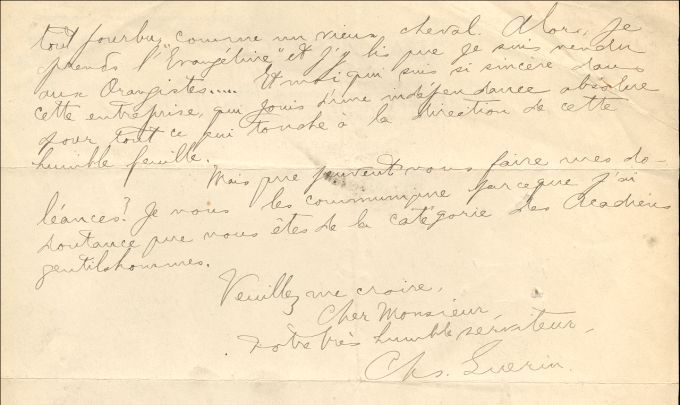 tout fourbu, comme un vieux cheval. Alors, je
prends l'"Evangéline" et j'y lis que je suis vendu
aux Orangistes..... Et moi qui suis si sincère dans
cette entreprise, qui jouis d'une indépendance absolue
pour tout ce qui touche à la direction de cette
humble feuille.
Mais que peuvent vous faire mes do-
léances? Je vous les communique parceque j'ai
doutance que vous êtes de la catégorie des Acadiens
gentilshommes.
Veuillez me croire,
Cher Monsieur,
votre très humble serviteur,
Chs. Guerin.